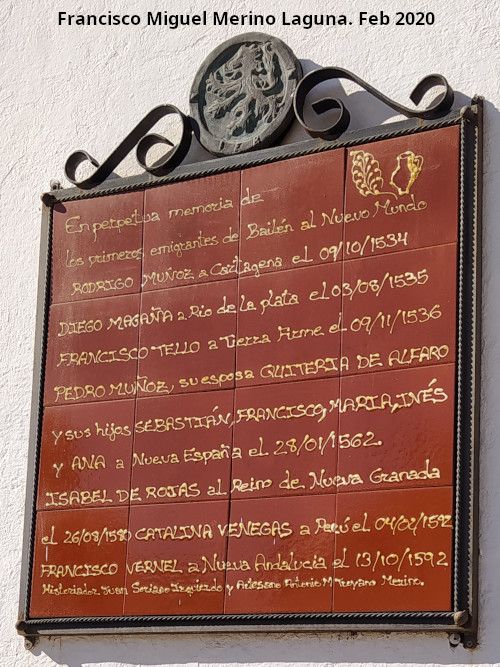 Francisco Miguel Merino Laguna. Feb 2020
En perpetua memoria de
los primeros emigrantes de Bailén al Nuevo Mundo
RODRIGO MUÑOZ a Cartagena el 09/10/1534
DIEGO MAGAÑA a Rio de la plata el 03/08/1535
FRANCISCO TELLO a Tierra Firme el 09/11/1536
PEDRO MUÑOZ, su esposa QUITERIA DE ALFARO
y sus hijos SEBASTIÁN, FRANCISCO, MARIA, INÉS
y ANA a Nueva España el 28/01/1562.
ISABEL DE ROJAS al Reino de Nueva Granada
el 26/08/1580 CATALINA VENEGAS a Perú el 04/02/1592
FRANCISCO VERNEL a Nueva Andalucia el 13/10/1592
Historiador Juan Soriano Izquierdo y Artesano Antonio M. Merino.